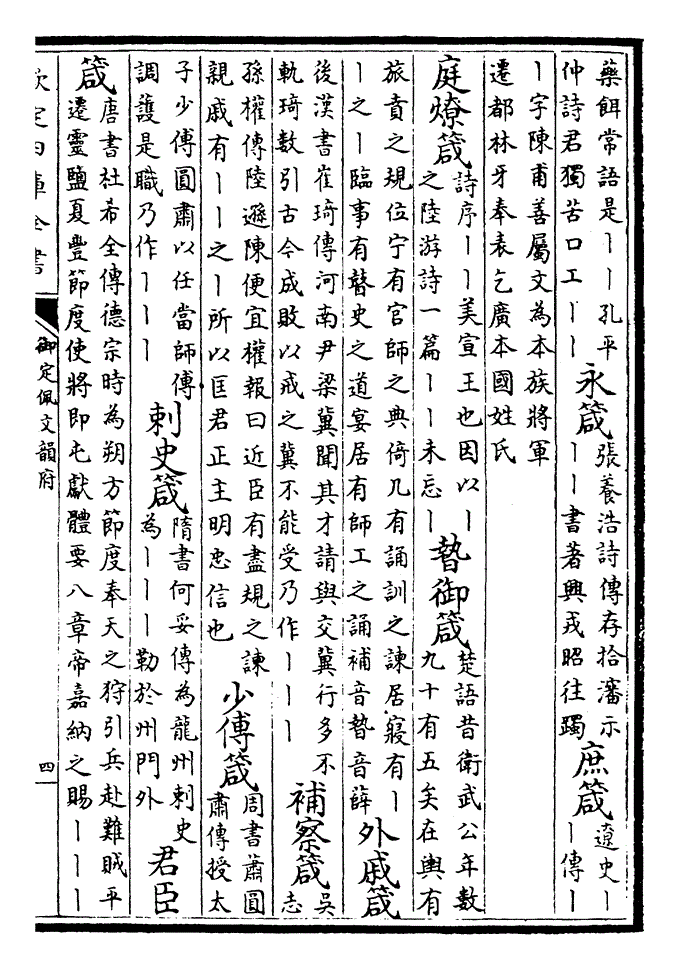 藥餌常語是丨丨孔平
仲詩君獨苦口工丨丨
永箴
張養浩詩傳存拾瀋示
丨丨書著興戎昭往躅
庶箴
遼史丨丨傳丨
丨字陳甫善屬文為本族將軍
遷都林牙奉表乞廣本國姓氏
庭燎箴
詩序丨丨美宣王也因以丨
之陸游詩一篇丨丨未忘丨
暬御箴
楚語昔衛武公年數
九十有五矣在輿有
旅賁之規位宁有官師之典倚几有誦訓之諫居寢有丨
丨之丨臨事有瞽史之道宴居有師工之誦補音暬音薛
外戚箴
後漢書崔琦傳河南尹梁冀聞其才請與交冀行多不
軌琦數引古今成敗以戒之冀不能受乃作丨丨丨
補察箴
吳
志
孫權傳陸遜陳便宜權報曰近臣有盡規之諫
親戚有丨丨之丨所以匡君正主明忠信也
少傅箴
周書蕭圓
肅傳授太
子少傅圓肅以任當師傅
調護是職乃作丨丨丨
刺史箴
隋書何妥傳為龍州刺史
為丨丨丨勒於州門外
君臣
箴
唐書杜希全傳德宗時為朔方節度奉天之狩引兵赴難賊平
遷靈鹽夏豐節度使將即屯獻體要八章帝嘉納之賜丨丨丨
欽定四庫全書
御定佩文韻府
四